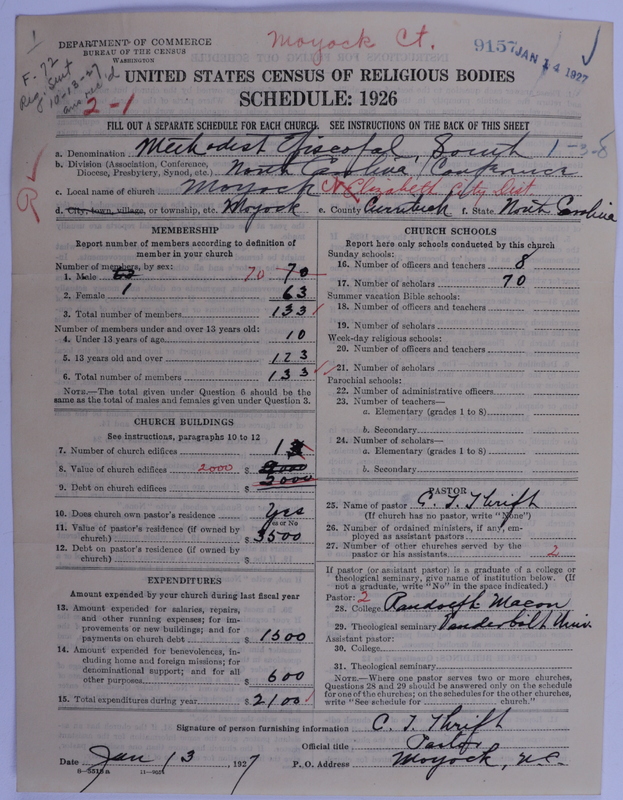 1
DEPARTMENT OF COMMERCE
BUREAU OF THE CENSUS
WASHINGTON
Moyock Ct.
9157
JAN 14 1927
F-72
Reg. Sent
10-13-27
ans rec'd
2-1
UNITED STATES CENSUS OF RELIGIOUS BODIES
SCHEDULE: 1926
FILL OUT A SEPARATE SCHEDULE FOR EACH CHURCH. SEE INSTRUCTIONS ON THE BACK OF THIS SHEET
a. Denomination Methodist Episcopal, South 1-3-8
b. Division (Association, Conference, Diocese, Presbytery, Synod, etc.) North Carolina, Conference
c. Local name of church Moyock Elizabeth City Dist
R
d. City, town, village, or township, etc. Moyock e. County Currituck f. State North Carolina
MEMBERSHIP
Report number of members according to definition of
member in your church
Number of members, by sex:
1. Male 70 70
2. Female 63
3. Total number of members 133
Number of members under and over 13 years old:
4. Under 13 years of age 10
5. 13 years old and over 123
6. Total number of members 133
NOTE.—The total given under Question 6 should be
same as the total of males and females given under Question 3.
CHURCH BUILDINGS
See instructions, paragraphs 10 to 12
7. Number of church edifices 1
8. Value of church edifices 2000 $
9. Debt on church edifices $ 5000
10. Does church own pastor's residence? Yes
Yes or No
11. Value of pastor's residence (if owned by
church) $ 3500
12. Debt on pastor's residence (if owned by
church) $
EXPENDITURES
Amount expended by your church during last fiscal year
13. Amount expended for salaries, repairs,
and other running expenses; for im-
provements or new buildings; and for
payments on church debt $ 1500
14. Amount expended for benevolences, in-
cluding home and foreign missions; for
denominational support; and for all
other purposes $ 600
15. Total expenditures during year $ 2100
CHURCH SCHOOLS
Report here only schools conducted by this church
Sunday schools:
16. Number of officers and teachers 8
17. Number of scholars 70
Summer vacation Bible schools:
18. Number of officers and teachers
19. Number of scholars
Week-day religious schools:
20. Number of officers and teachers
21. Number of scholars
Parochial schools:
22. Number of administrative officers
23. Number of teachers—
a. Elementary (grades 1 to 8)
b. Secondary
24. Number of scholars—
a. Elementary (grades 1 to 8)
b. Secondary
PASTOR
25. Name of pastor C. T. Thrift
(If church has no pastor, write "None")
26. Number of ordained ministers, if any, em-
ployed as assistant pastors
27. Number of other churches served by the
pastor or his assistants 2
If pastor (or assistant pastor) is a graduate of a college or
theological seminary, give name of institution below. (If
not a graduate, write "No" in the space indicated.)
Pastor: 2
28. College Randolph Macon
29. Theological seminary Vanderbilt Univ.
Assistant pastor:
30. College
31. Theological seminary
NOTE.—Where one pastor serves two or more churches,
Questions 28 and 29 should be answered only on the schedule
for one of the churches; on the schedules for the other churches,
write "See schedule for church."
Signature of person furnishing information C. T. Thrift
Official title Pastor
Date Jan 13, 1927 P. O. Address Moyock, N.C.
8—5515a 11—9051